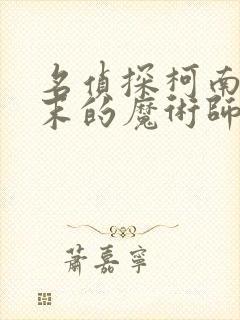 名偵探柯南
末的魔術師
蕭嘉寧